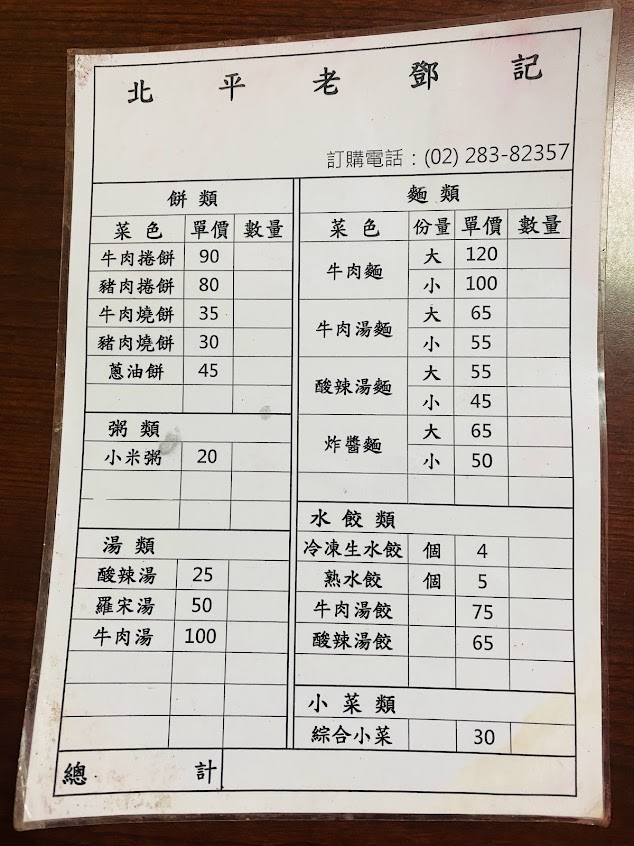 北平老鄧記
訂購電話：(02) 283-82357
餅類
菜色 單價 數量
牛肉捲餅 90
豬肉捲餅 80
牛肉燒餅 35
豬肉燒餅 30
蔥油餅 45
粥類
小米粥 20
湯類
酸辣湯 25
羅宋湯 50
牛肉湯 100
麵類
菜色 份量 單價 數量
牛肉麵 大 120
小 100
牛肉湯麵 大 65
小 55
酸辣湯麵 大 55
小 45
炸醬麵 大 65
小 50
水餃類
冷凍生水餃 個 4
熟水餃 個 5
牛肉湯餃 75
酸辣湯餃 65
小菜類
綜合小菜 30
總計